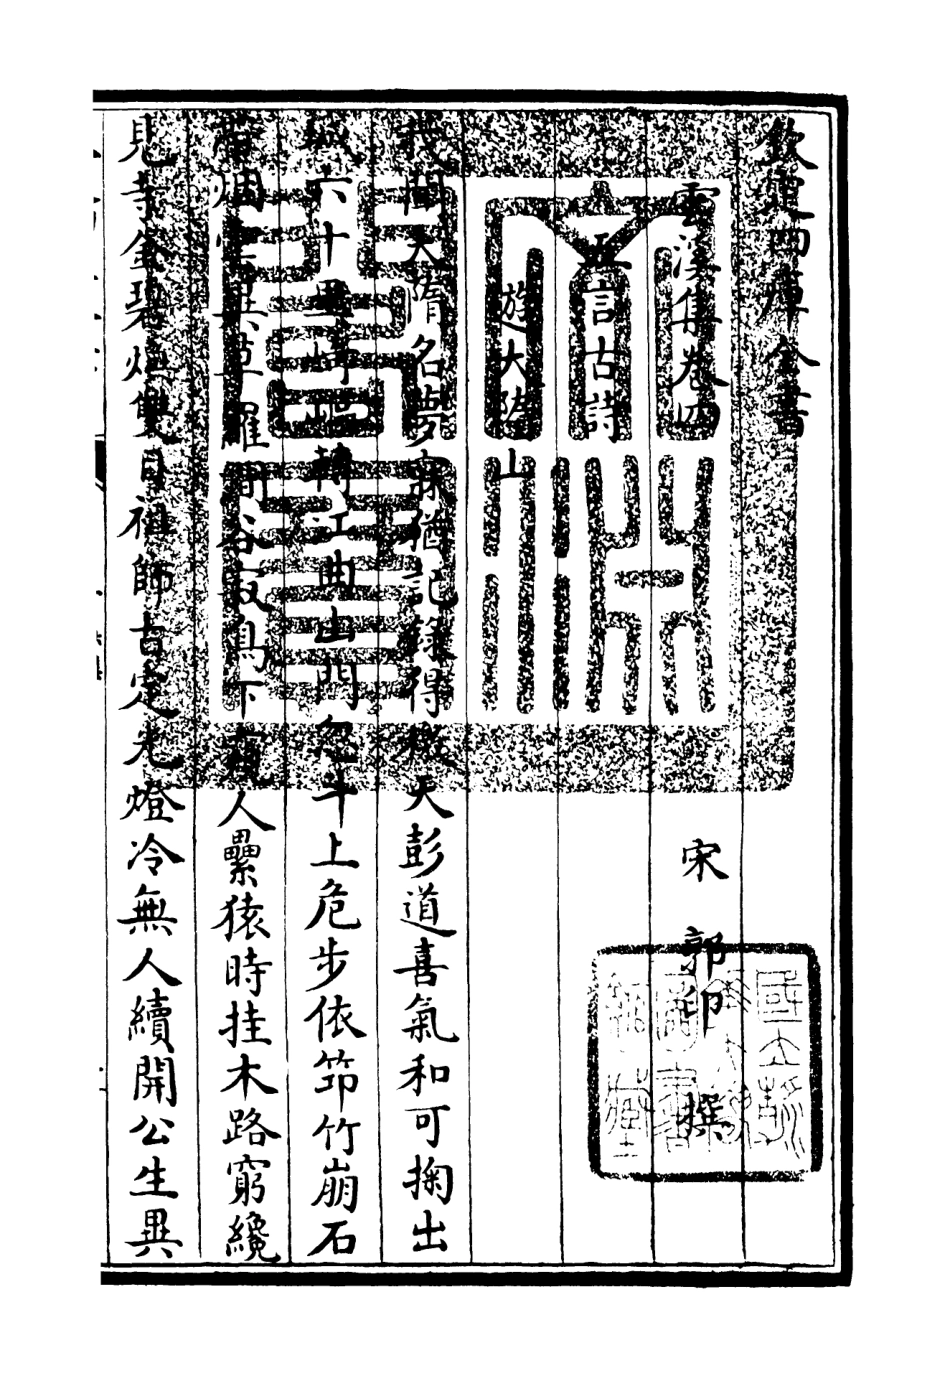 欽定四庫全書
雲溪集卷四
宋 郭印 撰
五言古詩
遊大隋山
我聞大隋名夢寐猶記錄得微天彭道喜氣和可掬出
城六十里崎嶇轉江曲山門忽斗上危步依笻竹崩石
烟霏異草羅開谷寂鳥下窺人纍猿時挂木路窮纔
見寺金碧炫雙目祖師古定光燈冷無人續開公生異